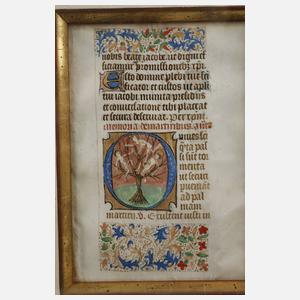 nobis beate iacobe ut digni effi
ciamur promissionibus xpi
Esto domine plebi tue sci
ficator et custos ut apli
tui iacobi munita presidiis
et conversatione tibi placeat
et secura deserviat. Per
memoria de martiribus. ant
pal
si sut tor
menta
ut securi
ad pal
mam
martirii. v. Exultent iusti in